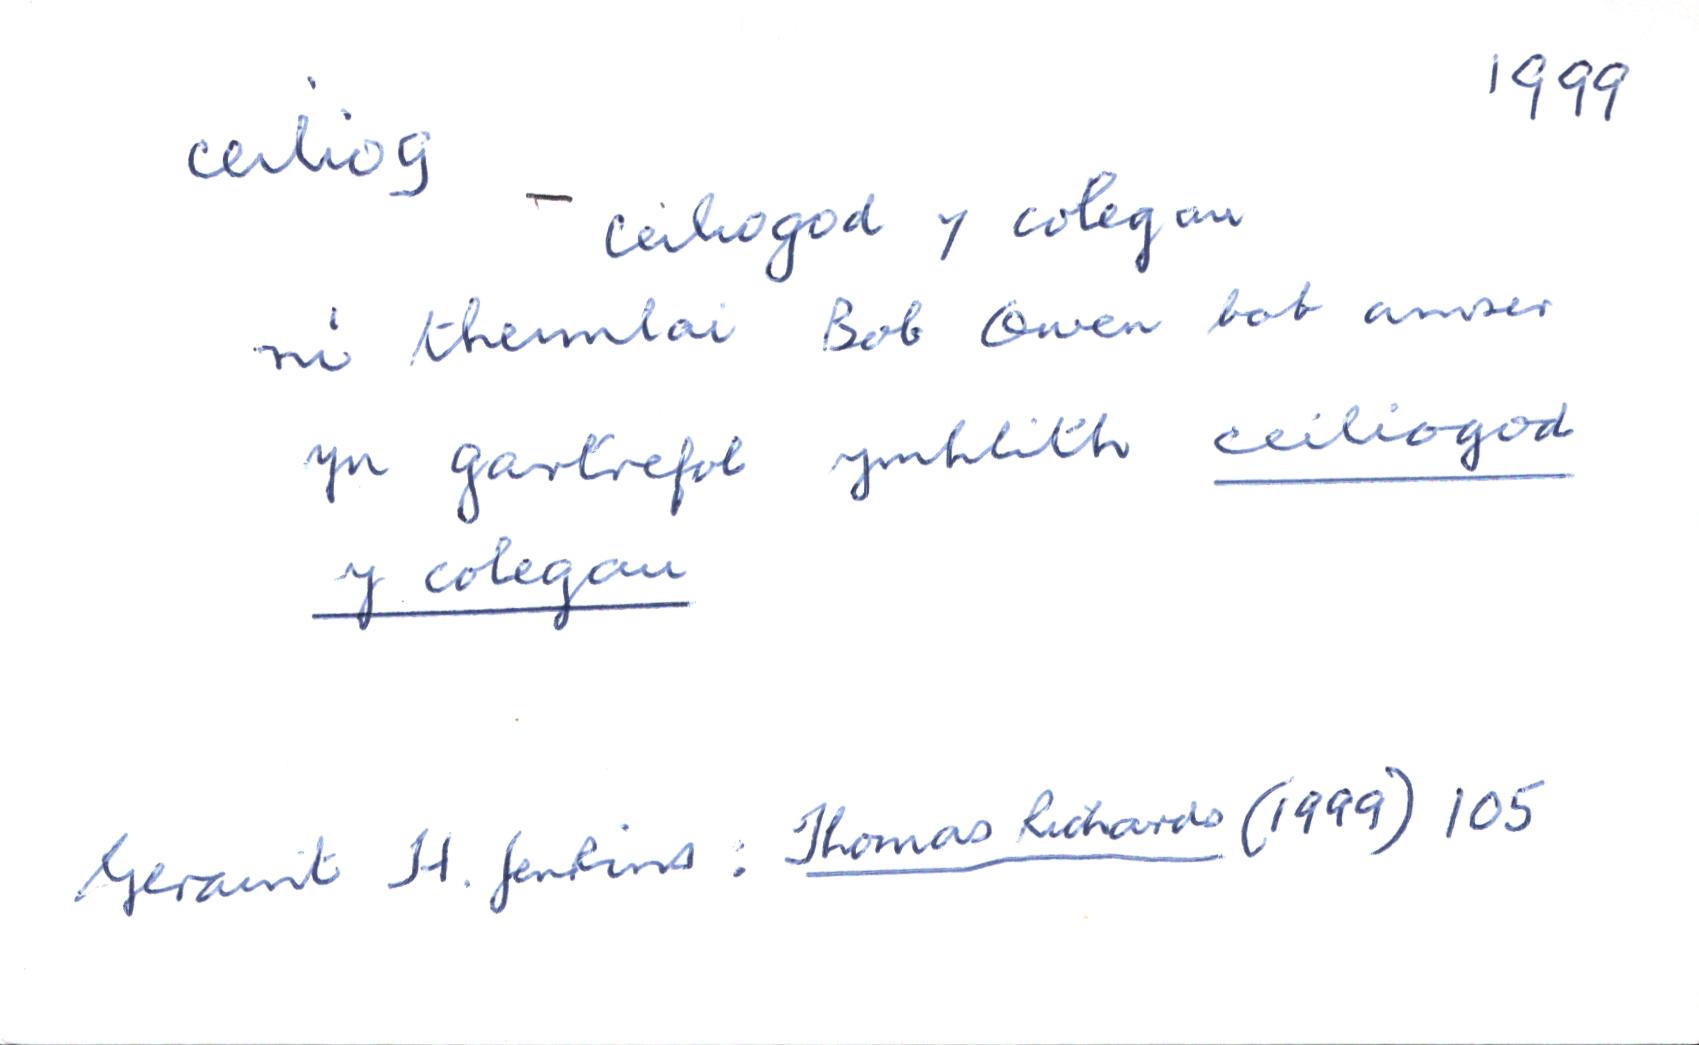 1999
ceiliog
— ceiliogod y colegau
ni theimlai Bob Owen bob amser
yn gartrefol ymhlith ceiliogod
y colegau
Geraint H. Jenkins : Thomas Richards (1999) 105